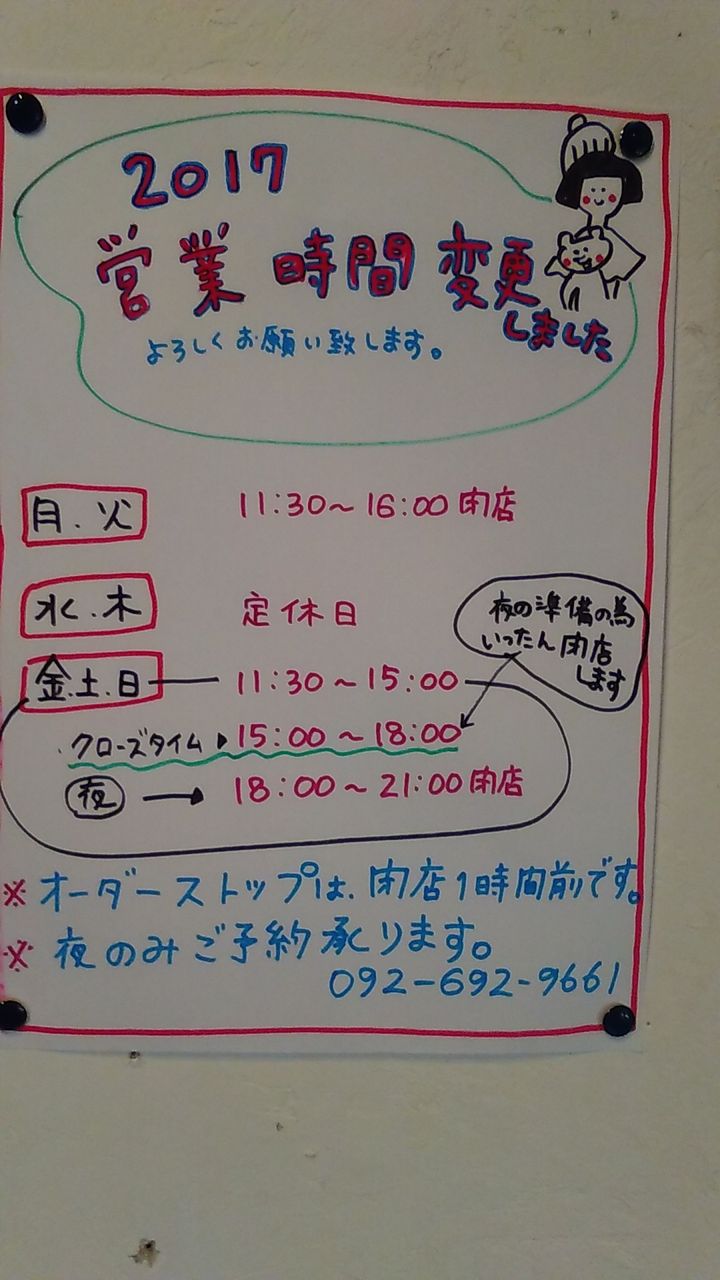 2017
営業時間変更
しました
よろしくお願い致します。
月.火 11:30～16:00閉店
水.木 定休日
夜の準備の為
いったん閉店
します
金.土.日 11:30～15:00
クローズタイム 15:00～18:00
夜 → 18:00～21:00閉店
※オーダーストップは、閉店1時間前です。
※夜のみご予約承ります。
092-692-9661